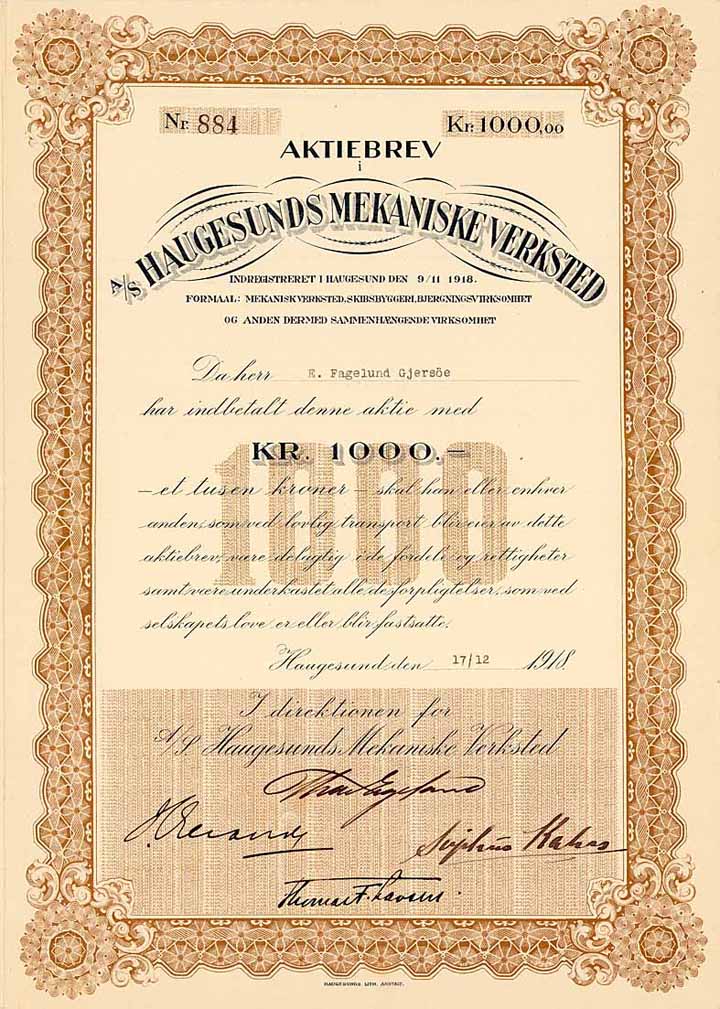 Nr. 884 Kr. 1000,00
AKTIEBREV
i
A/S HAUGESUNDS MEKANISKE VERKSTED
INDREGISTRERET I HAUGESUND DEN 9/11 1918.
FORMAAL: MEKANISK VERKSTED, SKIBSBYGGERI, BJERGNINGSVIRKSOMHET
OG ANDEN DERMED SAMMENHÆNGENDE VIRKSOMHET
Da herr E. Fagelund Gjersöe
har indbetalt denne aktie med
1000
KR. 1000.—
— et tusen kroner — skal han eller enhver
anden, som ved lovlig transport blir eier av dette
aktiebrev, være delagtig i de fordele og rettigheter
samt være underkastet alle de forpligtelser, som ved
selskapets love er eller blir fastsatte.
Haugesund den 17/12 1918.
I direktionen for
A/S. Haugesunds Mekaniske Verksted
HAUGESUNDS LITH. ANSTALT.